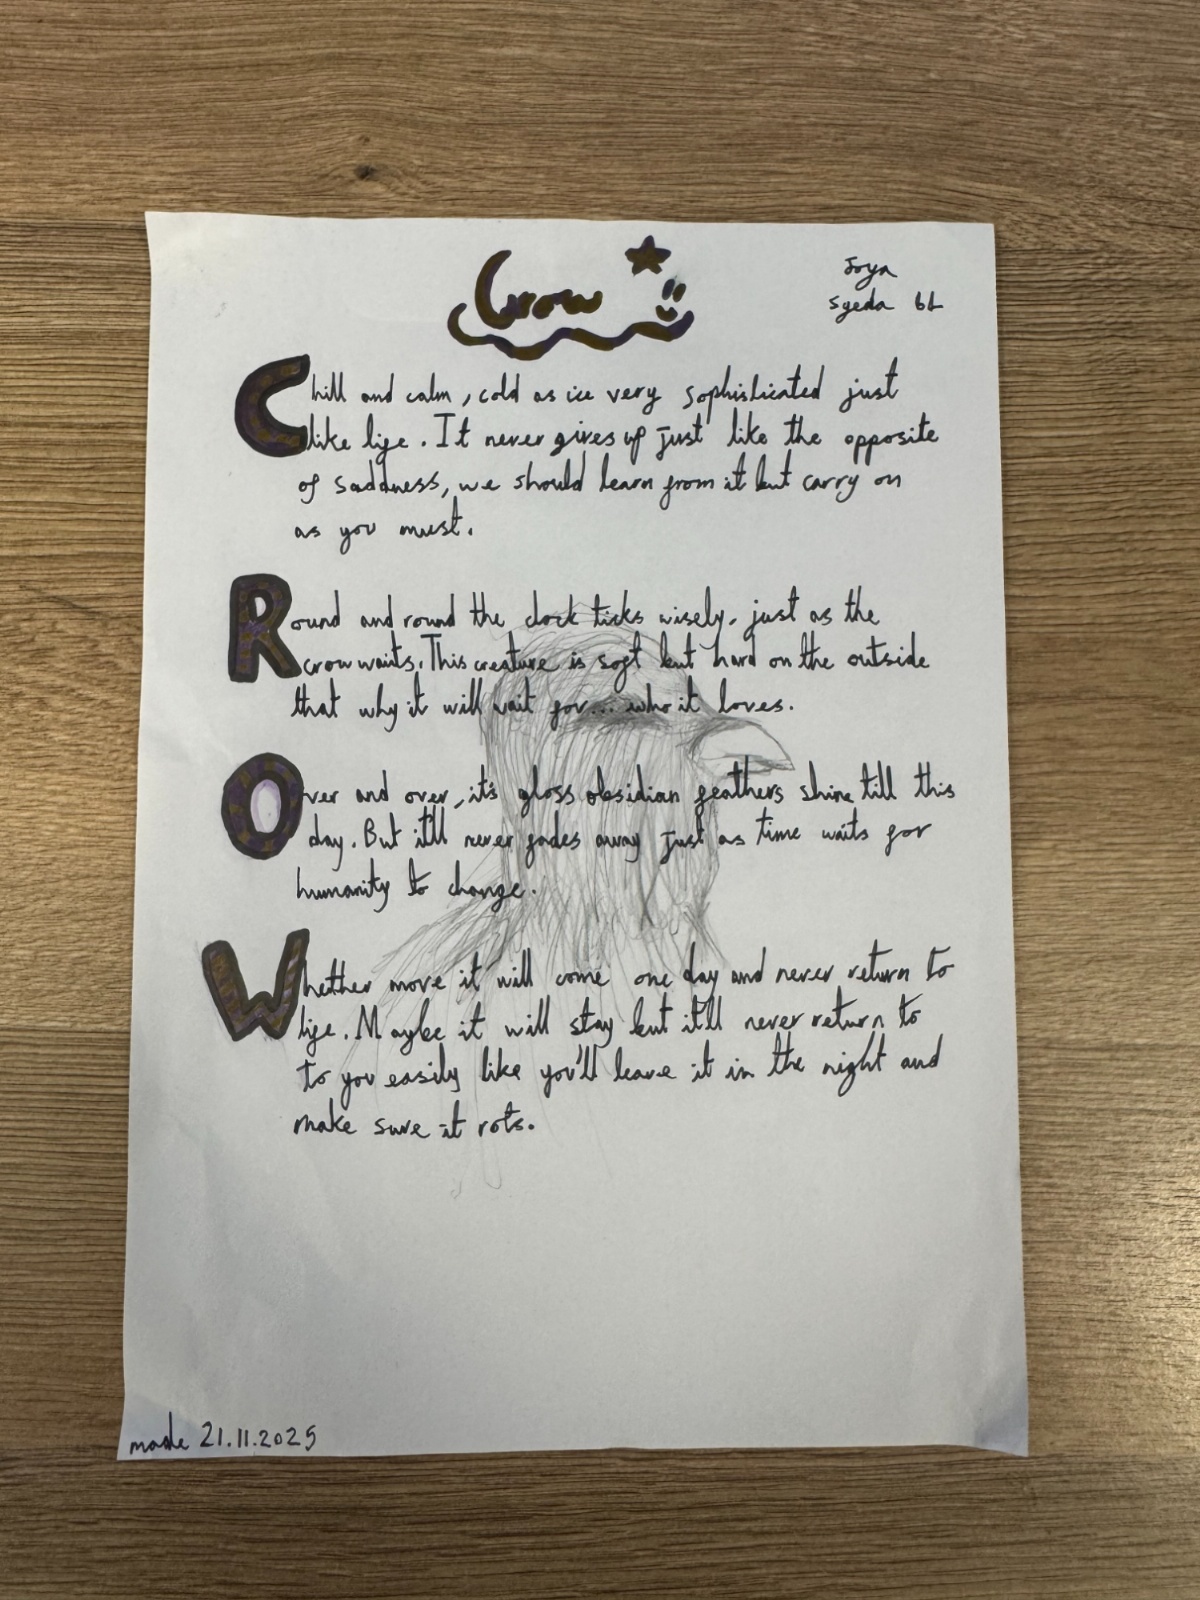 Crow
Joya
Syeda 6L
Chill and calm, cold as ice very sophisticated just
like life. It never gives up just like the opposite
of saddness, we should learn from it but carry on
as you must.
Round and round the clock ticks wisely, just as the
crow waits. This creature is soft but hard on the outside
that why it will wait for... who it loves.
Over and over, it's gloss obsidian feathers shine till this
day. But it'll never fades away just as time waits for
humanity to change.
Whether move it will come one day and never return to
life. Maybe it will stay but it'll never return to
to you easily like you'll leave it in the night and
make sure it rots.
made 21.11.2025